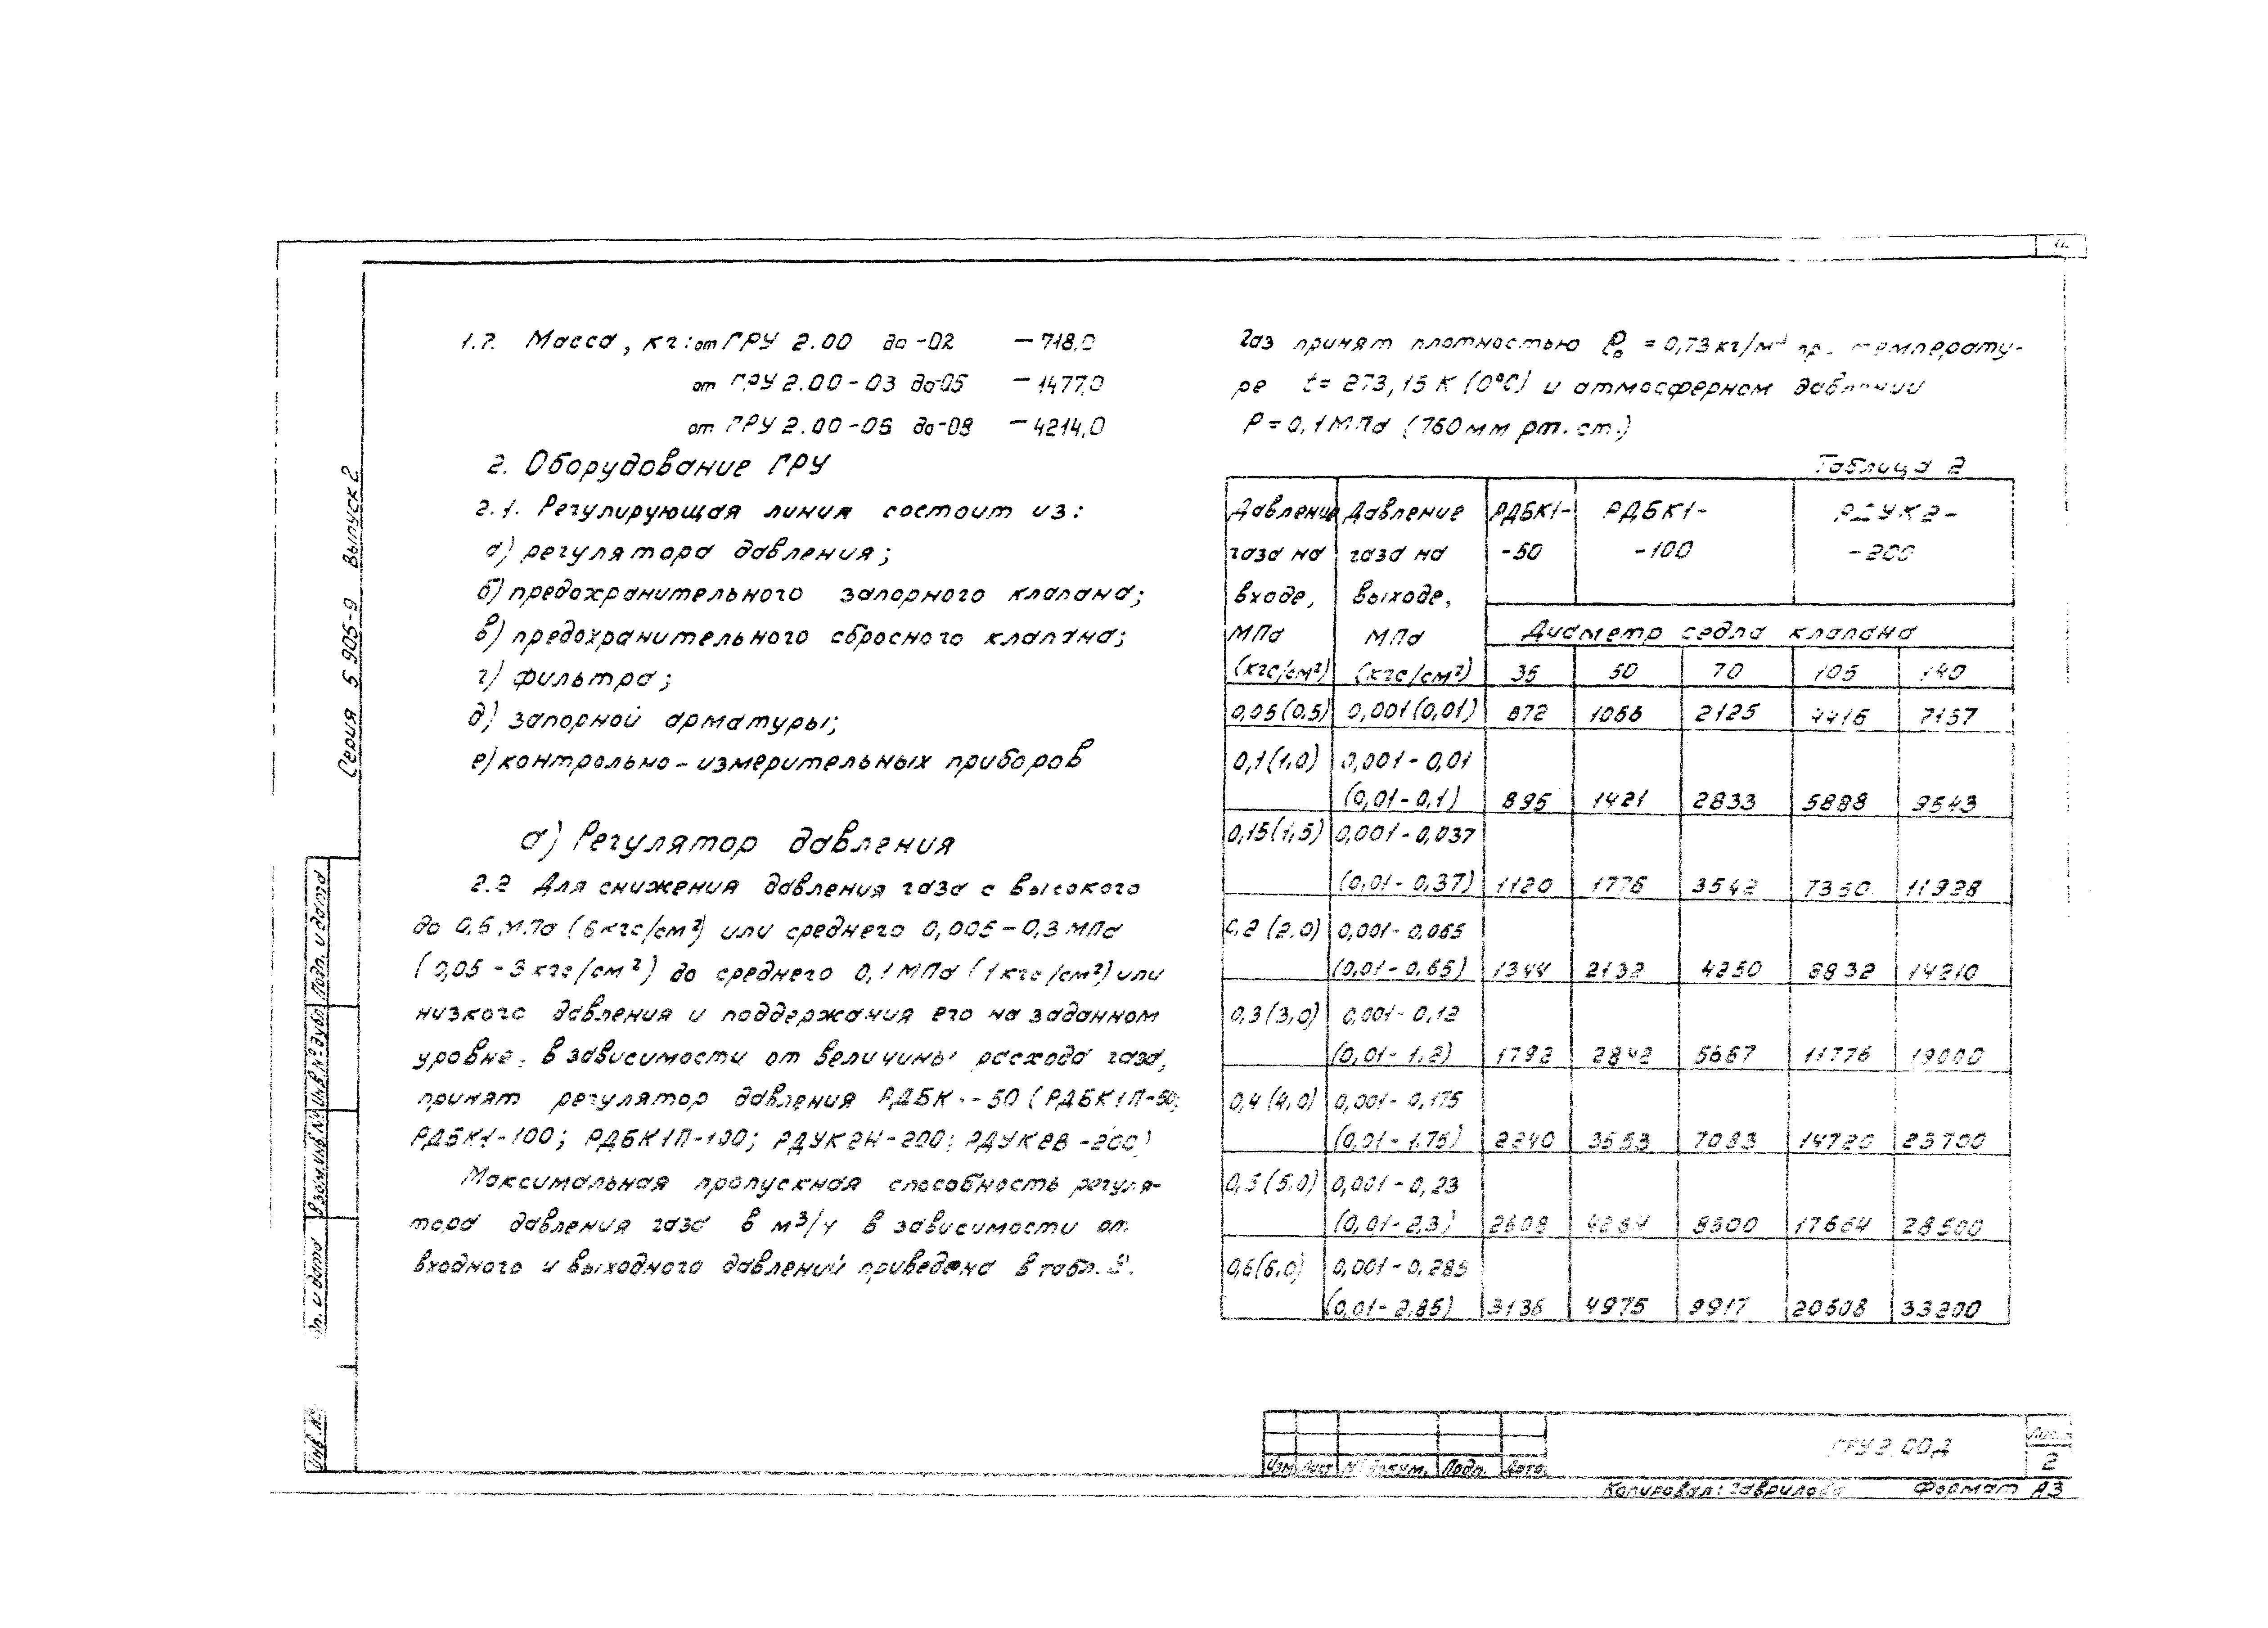 1.7. Масса, кг: от ГРУ 2.00 до -02 — 718,0
от ГРУ 2.00-03 до-05 — 1477,0
от ГРУ 2.00-06 до-08 — 4214,0
2. Оборудование ГРУ
2.1. Регулирующая линия состоит из:
а) регулятора давления;
б) предохранительного запорного клапана;
в) предохранительного сбросного клапана;
г) фильтра;
д) запорной арматуры;
е) контрольно-измерительных приборов
а) Регулятор давления
2.2 Для снижения давления газа с высокого
до 0,6 МПа (6 кгс/см²) или среднего 0,005-0,3 МПа
(0,05-3 кгс/см²) до среднего 0,1 МПа (1 кгс/см²) или
низкого давления и поддержания его на заданном
уровне, в зависимости от величины расхода газа,
принят регулятор давления РДБК -50 (РДБК1П-50;
РДБК1-100; РДБК1П-100; РДУК2Н-200; РДУК2В-200)
Максимальная пропускная способность регуля-
тора давления газа в м³/ч в зависимости от
входного и выходного давлений приведена в табл.
Газ принят плотностью ρ₀ = 0,73 кг/м³ температу-
ре t = 273,15 К (0°С) и атмосферном давлении
Р = 0,1 МПа (760 мм рт. ст.)
Таблица 2
Давление газа на входе, МПа (кгс/см²) Давление газа на выходе, МПа (кгс/см²) РДБК1- -50 РДБК1- -100 РДУК2- -200
Диаметр седла клапана
35 50 70 105 140
0,05 (0,5) 0,001 (0,01) 672 1066 2125 4416 7157
0,1 (1,0) 0,001 - 0,01
(0,01 - 0,1) 895 1421 2833 5888 9543
0,15 (1,5) 0,001 - 0,037
(0,01 - 0,37) 1120 1776 3542 7360 11928
0,2 (2,0) 0,001 - 0,065
(0,01 - 0,65) 1344 2132 4250 8832 14210
0,3 (3,0) 0,001 - 0,12
(0,01 - 1,2) 1792 2842 5667 11776 19000
0,4 (4,0) 0,001 - 0,175
(0,01 - 1,75) 2240 3553 7083 14720 23700
0,5 (5,0) 0,001 - 0,23
(0,01 - 2,3) 2608 4264 8500 17664 28500
0,6 (6,0) 0,001 - 0,285
(0,01 - 2,85) 3136 4975 9917 20608 33200
Серия 5 905-9 Выпуск 2
Подп. и дата
Инв. № дубл.
Взам. инв. №
п. и дата
Инв. №
Изм. Лист № докум. Подп. Дата
ГРУ 2 00Д
Лист
2
Копировал: Гаврилова Формат А3